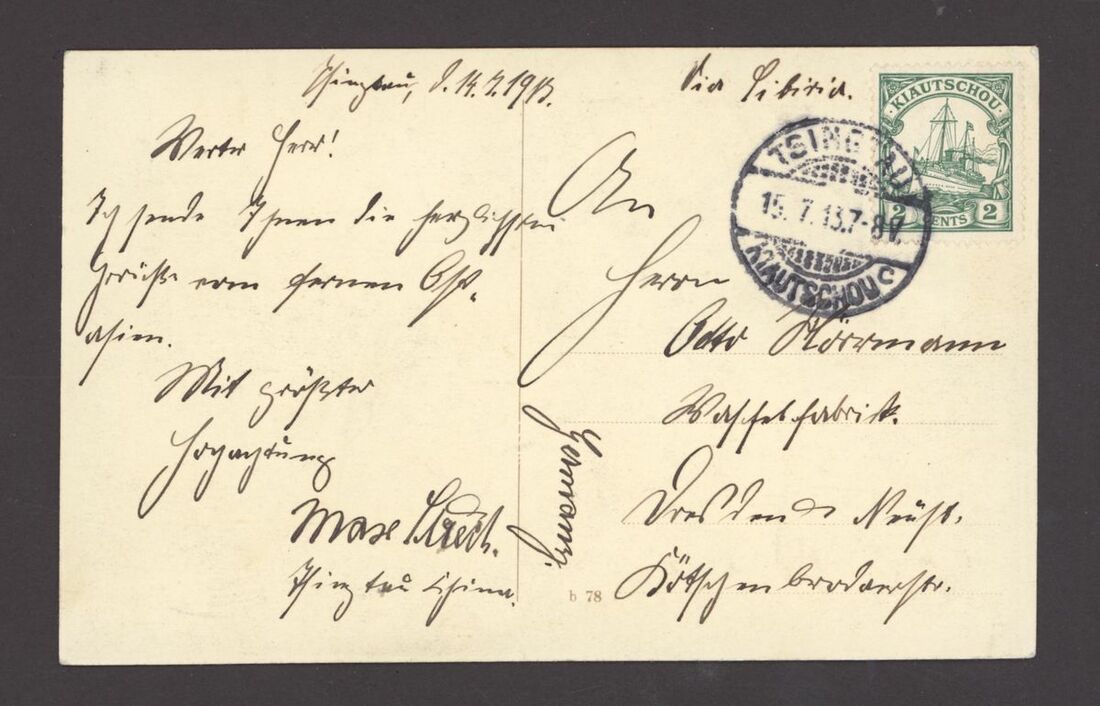 Tsingtau, d. 14.7.1913.
Via Sibiria.
Werter Herr!
Ich sende Ihnen die herzlichsten
Grüße vom fernen Ost-
asien.
Mit größter
Hochachtung
Max
Tsingtau China.
An
Herrn
Otto Hörrmann
Waffelfabrik.
Dresden Neust.
Kötschenbroderstr.
Germany.
b 78
KIAUTSCHOU
2 CENTS 2
TSINGTAU
15.7.13.7-8V.
KIAUTSCHOU